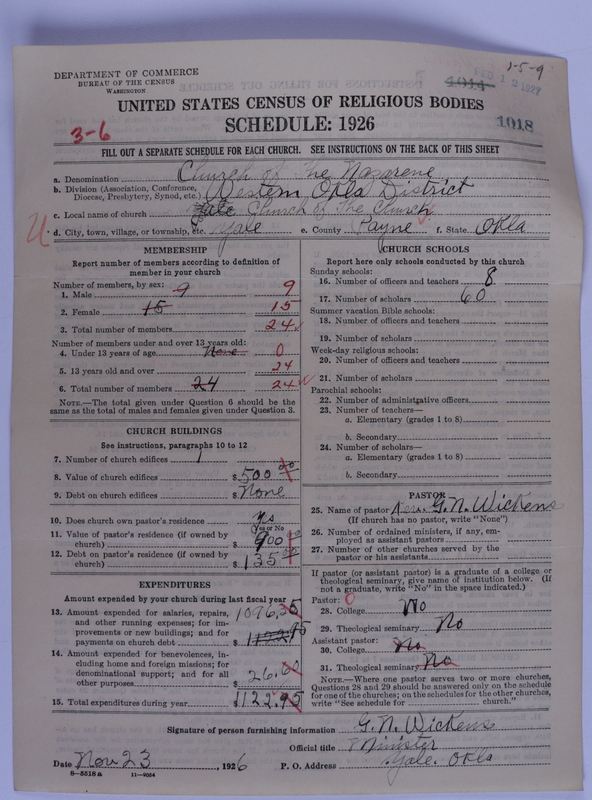 1-5-9
DEPARTMENT OF COMMERCE
BUREAU OF THE CENSUS
WASHINGTON
1014
FEB 12 1927
UNITED STATES CENSUS OF RELIGIOUS BODIES
SCHEDULE: 1926
3-6
1018
FILL OUT A SEPARATE SCHEDULE FOR EACH CHURCH. SEE INSTRUCTIONS ON THE BACK OF THIS SHEET
a. Denomination Church of The Nazarene
b. Division (Association, Conference, Diocese, Presbytery, Synod, etc.) Western Okla District
c. Local name of church Yale Church of The Church
d. City, town, village, or township, etc. Yale e. County Payne f. State Okla
U
MEMBERSHIP
Report number of members according to definition of
member in your church
Number of members, by sex:
1. Male 9 9
2. Female 15 15
3. Total number of members 24
Number of members under and over 13 years old:
4. Under 13 years of age None 0
5. 13 years old and over 24
6. Total number of members 24 24
NOTE.—The total given under Question 6 should be the
same as the total of males and females given under Question 3.
CHURCH BUILDINGS
See instructions, paragraphs 10 to 12
7. Number of church edifices 1
8. Value of church edifices $500 00
9. Debt on church edifices $None
10. Does church own pastor's residence Yes
(Yes or No)
11. Value of pastor's residence (if owned by
church) $900 00
12. Debt on pastor's residence (if owned by
church) $135 00
EXPENDITURES
Amount expended by your church during last fiscal year
13. Amount expended for salaries, repairs, 1096.35
and other running expenses; for im-
provements or new buildings; and for
payments on church debt $
14. Amount expended for benevolences, in-
cluding home and foreign missions; for
denominational support; and for all
other purposes $26.60
15. Total expenditures during year $1122.95
CHURCH SCHOOLS
Report here only schools conducted by this church
Sunday schools:
16. Number of officers and teachers 8
17. Number of scholars 60
Summer vacation Bible schools:
18. Number of officers and teachers
19. Number of scholars
Week-day religious schools:
20. Number of officers and teachers
21. Number of scholars
Parochial schools:
22. Number of administrative officers
23. Number of teachers—
a. Elementary (grades 1 to 8)
b. Secondary
24. Number of scholars—
a. Elementary (grades 1 to 8)
b. Secondary
PASTOR
25. Name of pastor Rev. G. N. Wickens
(If church has no pastor, write "None")
26. Number of ordained ministers, if any, em-
ployed as assistant pastors
27. Number of other churches served by the
pastor or his assistants
If pastor (or assistant pastor) is a graduate of a college or
theological seminary, give name of institution below. (If
not a graduate, write "No" in the space indicated.)
Pastor: 0
28. College No
29. Theological seminary No
Assistant pastor:
30. College No
31. Theological seminary No
NOTE.—Where one pastor serves two or more churches,
Questions 28 and 29 should be answered only on the schedule
for one of the churches; on the schedules for the other churches,
write "See schedule for church."
Signature of person furnishing information G. N. Wickens
Official title Minister
Date Nov 23, 1926 P. O. Address Yale. Okla
8—5518a 11—9054